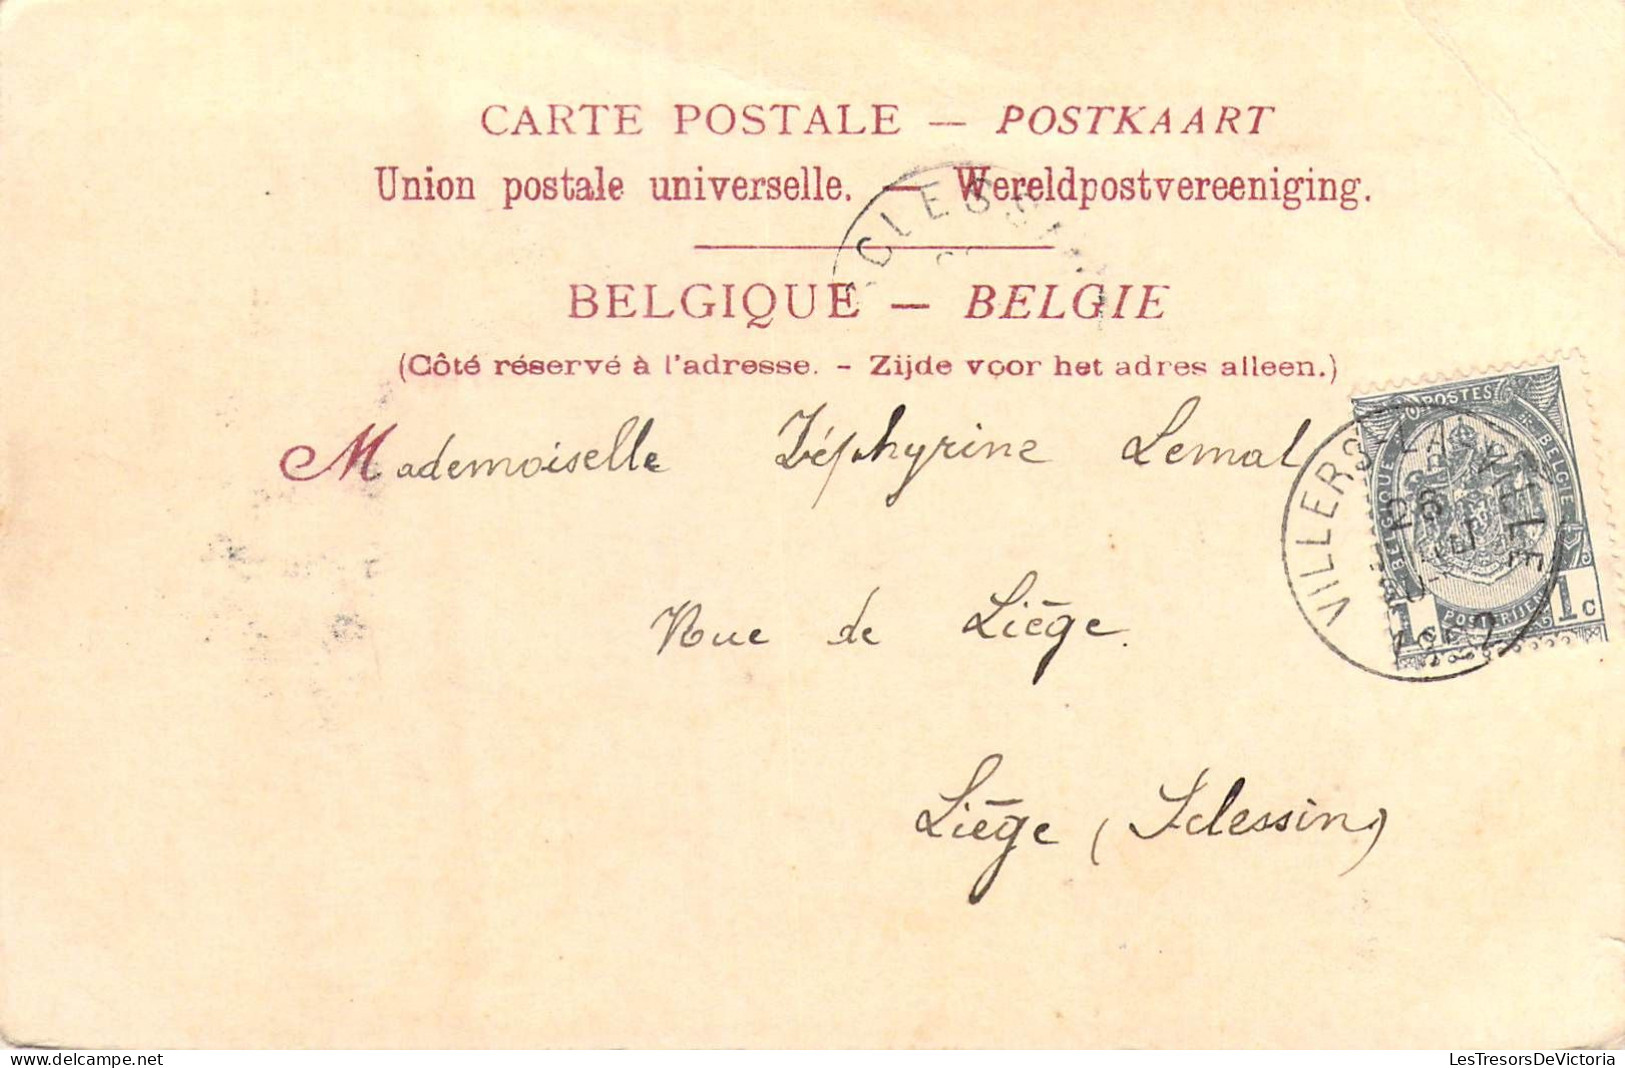 CARTE POSTALE — POSTKAART
Union postale universelle. — Wereldpostvereeniging.
BELGIQUE — BELGIE
(Côté réservé à l'adresse. - Zijde voor het adres alleen.)
Mademoiselle Zéphyrine Lemal
Rue de Liége.
Liége (Sclessin)
SCLESSIN
POSTES
BELGIQUE
BELGIË
POSTERIJEN
1 1 c
VILLERS-LA-VILLE
LesTresorsDeVictoria
delcampe.net